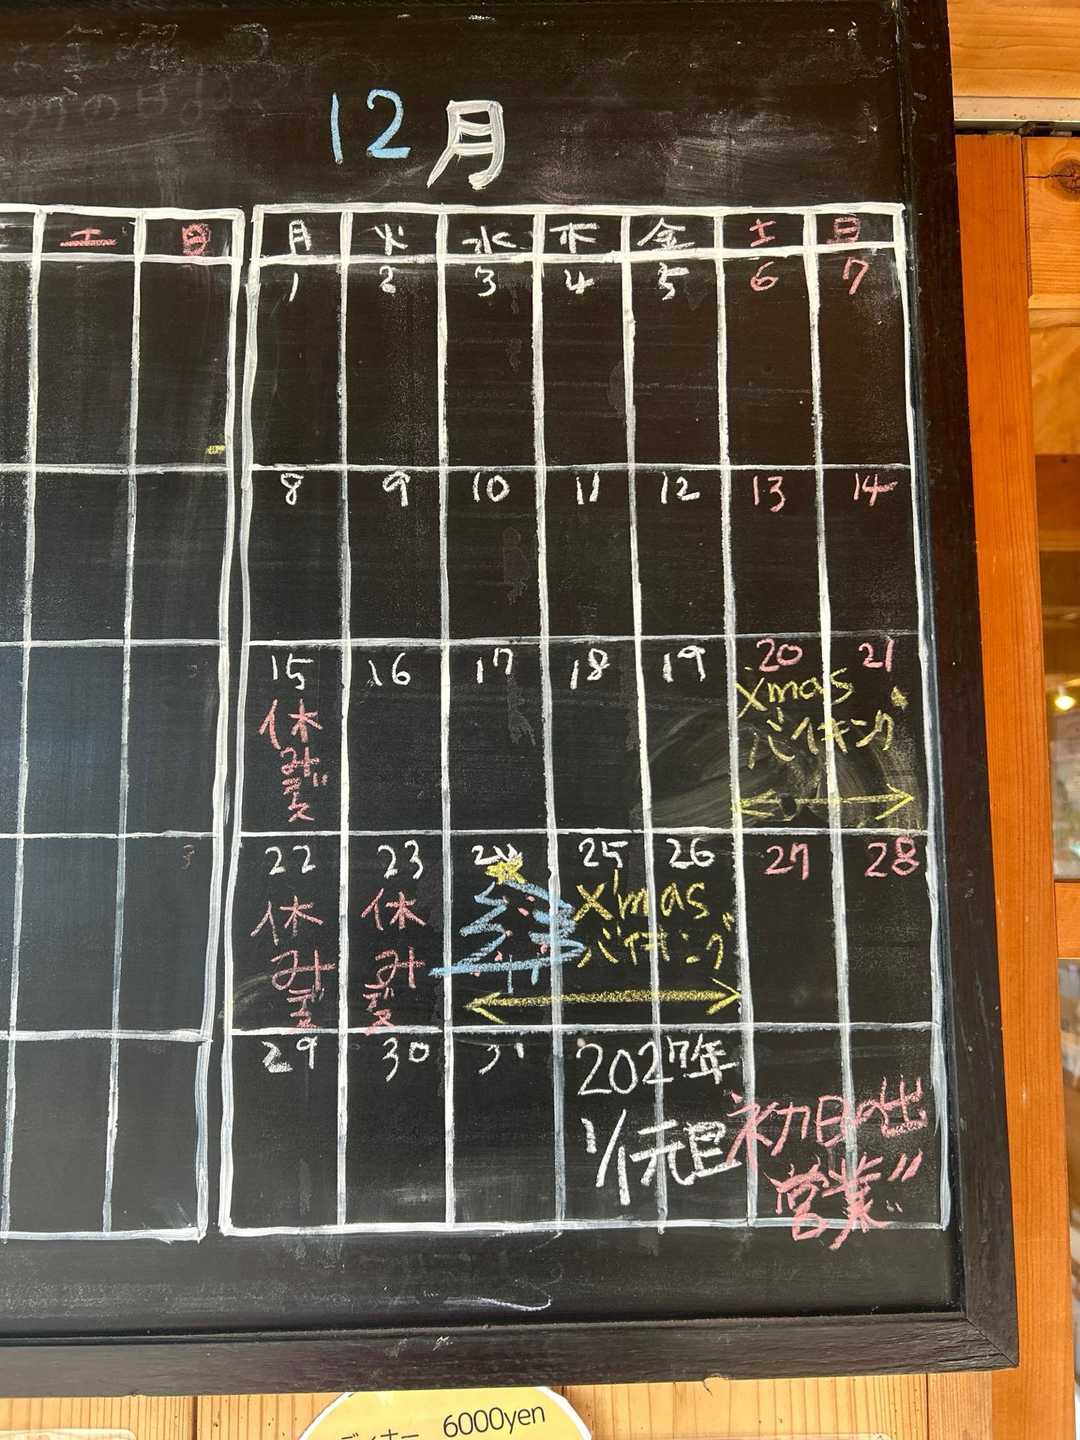 12月
土 日
月 火 水 木 金 土 日
1 2 3 4 5 6 7
8 9 10 11 12 13 14
15 16 17 18 19 20 21
休みデス
Xmas
バイキング
22 23 24 25 26 27 28
休みデス
休みデス
X'mas
バイキング
29 30 31
2027年
1/1元日
初日の出
営業
ディナー 6000yen